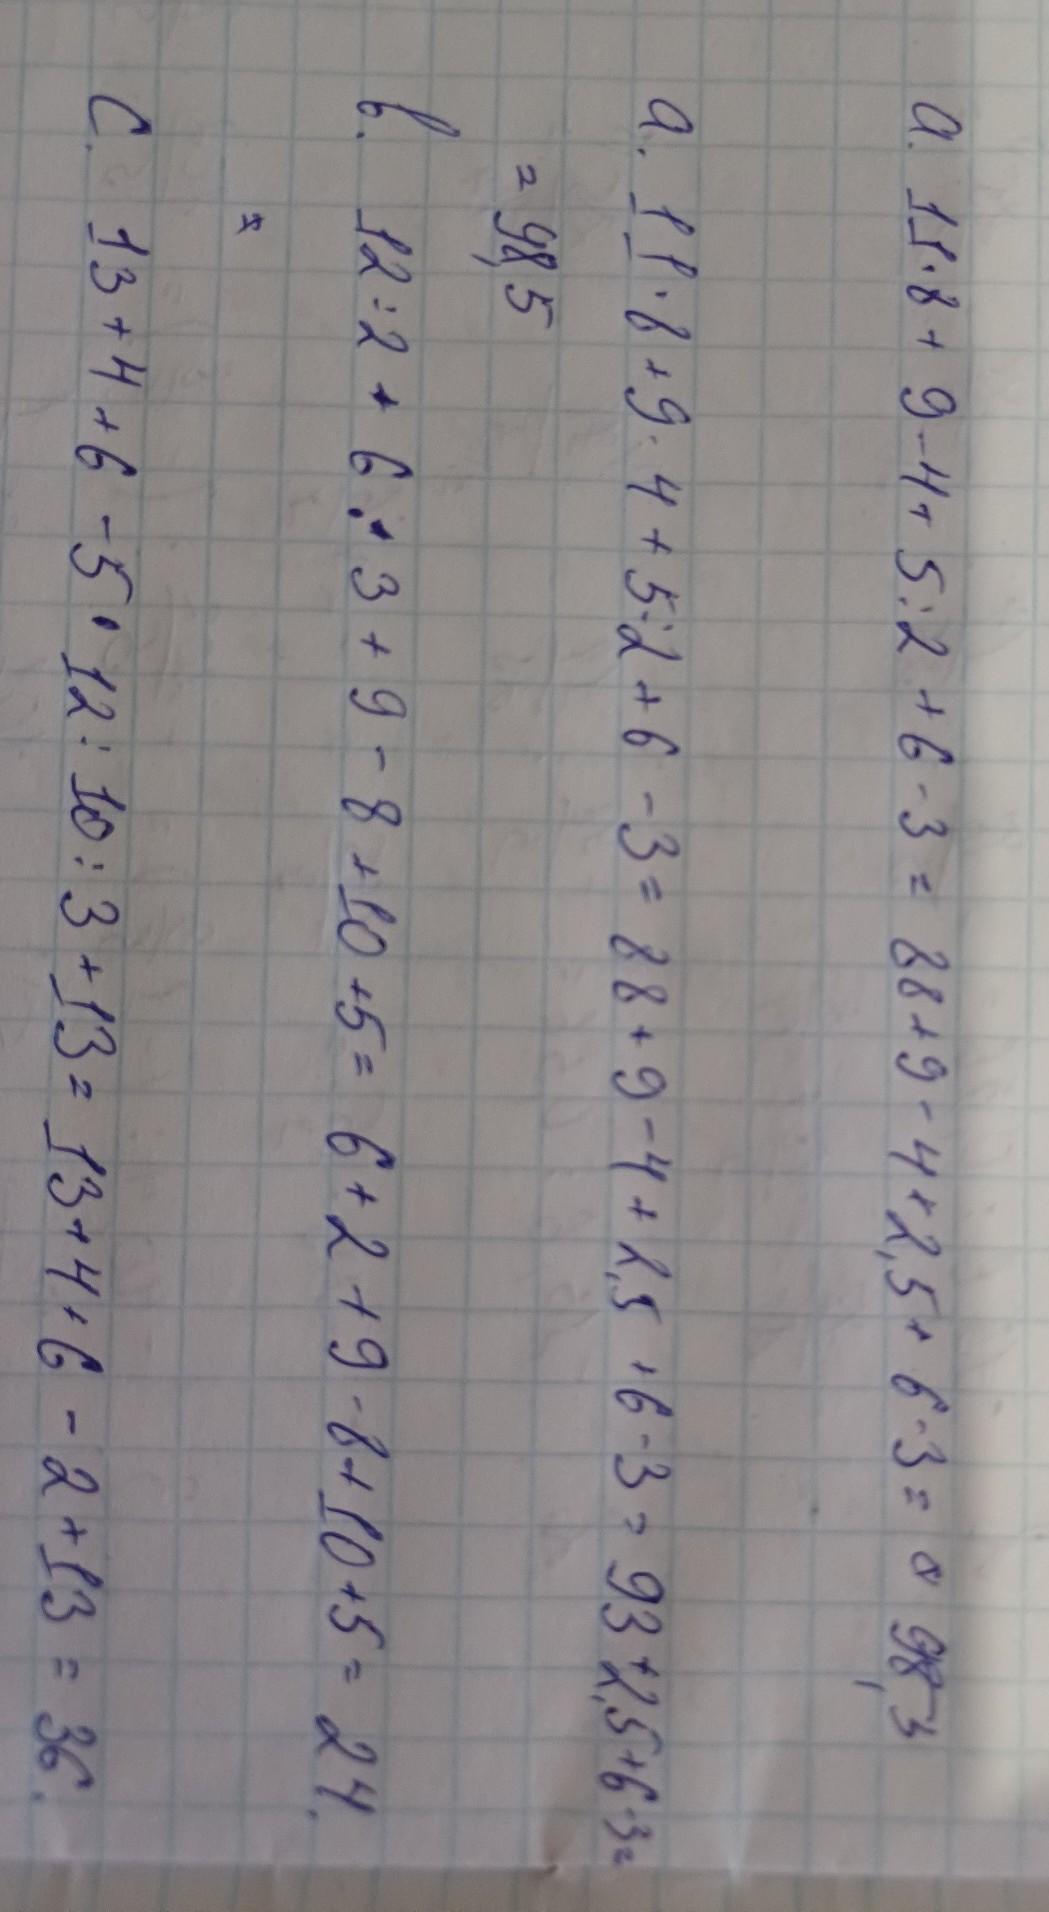 a. 11·8 + 9 - 4 + 5:2 + 6 - 3 = 88 + 9 - 4 + 2,5 + 6 - 3 = 98,3
a. 11·8 + 9 - 4 + 5:2 + 6 - 3 = 88 + 9 - 4 + 2,5 + 6 - 3 = 93 + 2,5 + 6 - 3 =
= 98,5
b. 12:2 + 6:3 + 9 - 8 + 10 + 5 = 6 + 2 + 9 - 8 + 10 + 5 = 24.
C. 13 + 4 + 6 - 5·12:10:3 + 13 = 13 + 4 + 6 - 2 + 13 = 36.